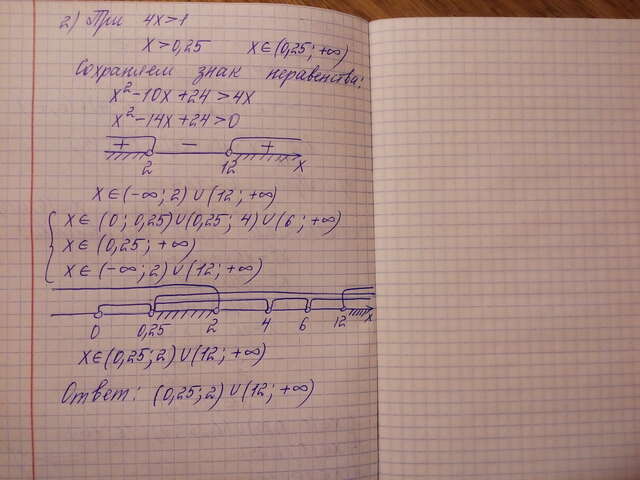 2) При 4x>1
x>0,25 x∈(0,25; +∞)
Сохраняем знак неравенства:
x²-10x+24>4x
x²-14x+24>0
+ − +
2 12 x
x∈(-∞; 2)∪(12; +∞)
x∈(0; 0,25)∪(0,25; 4)∪(6; +∞)
x∈(0,25; +∞)
x∈(-∞; 2)∪(12; +∞)
0 0,25 2 4 6 12 x
x∈(0,25; 2)∪(12; +∞)
Ответ: (0,25; 2)∪(12; +∞)